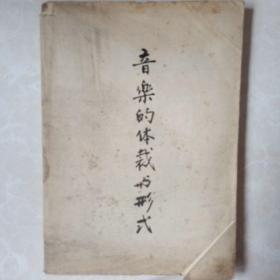 音樂的体裁与形式